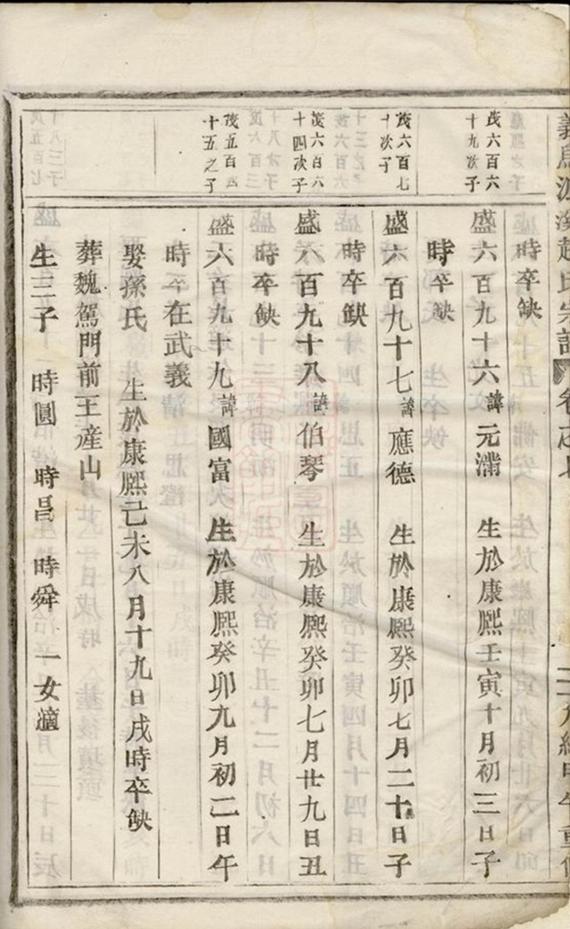 時卒缺
茂六百六
十九次子
盛六百九十六諱元滿 生於康熙壬寅十月初三日子
時卒缺
茂六百七
十次子
盛六百九十七諱應德 生於康熙癸卯七月二十日子
時卒缺
茂六百六
十四次子
盛六百九十八諱伯琴 生於康熙癸卯七月廿九日丑
時卒缺
茂五百
十五之子
盛六百九十九諱國富 生於康熙癸卯九月初二日午
時卒在武義
娶孫氏 生於康熙己未八月十九日戌時卒缺
葬魏駕門前王產山
生三子 時圓 時昌 時舜 一女適